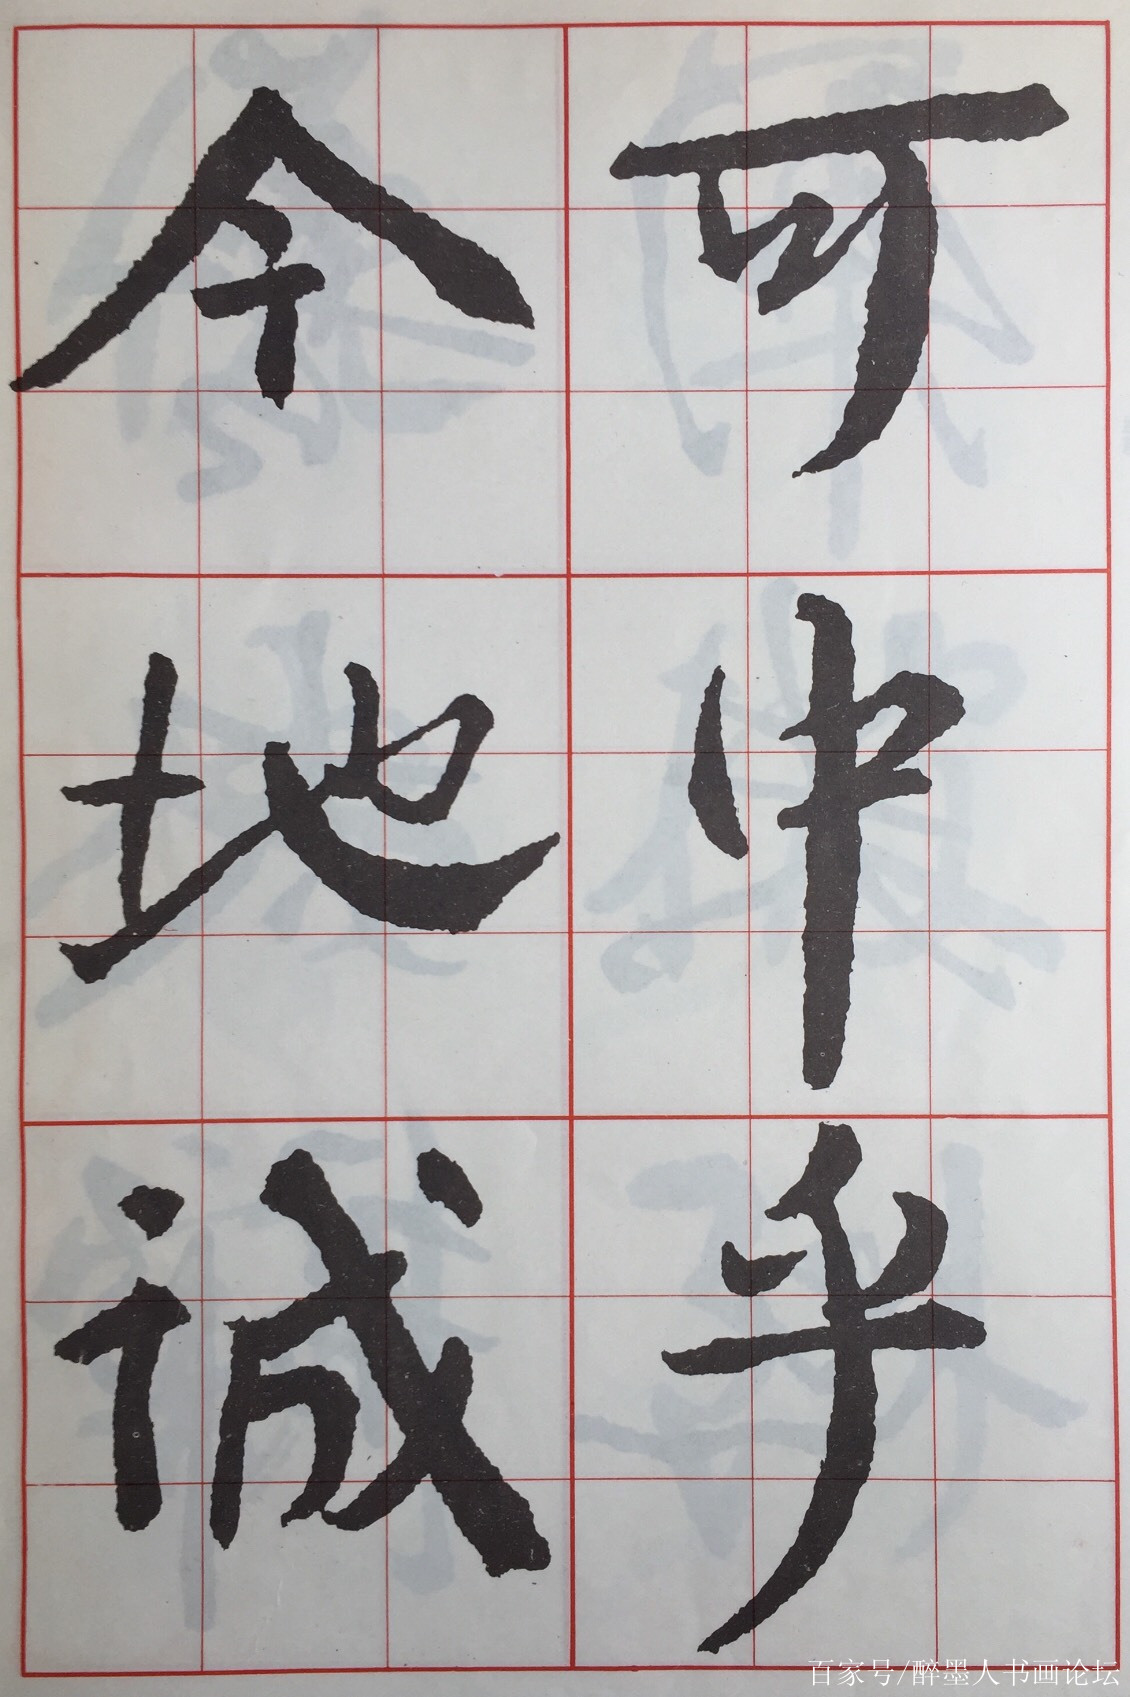 可中乎
今地诚
百家号/醉墨人书画论坛